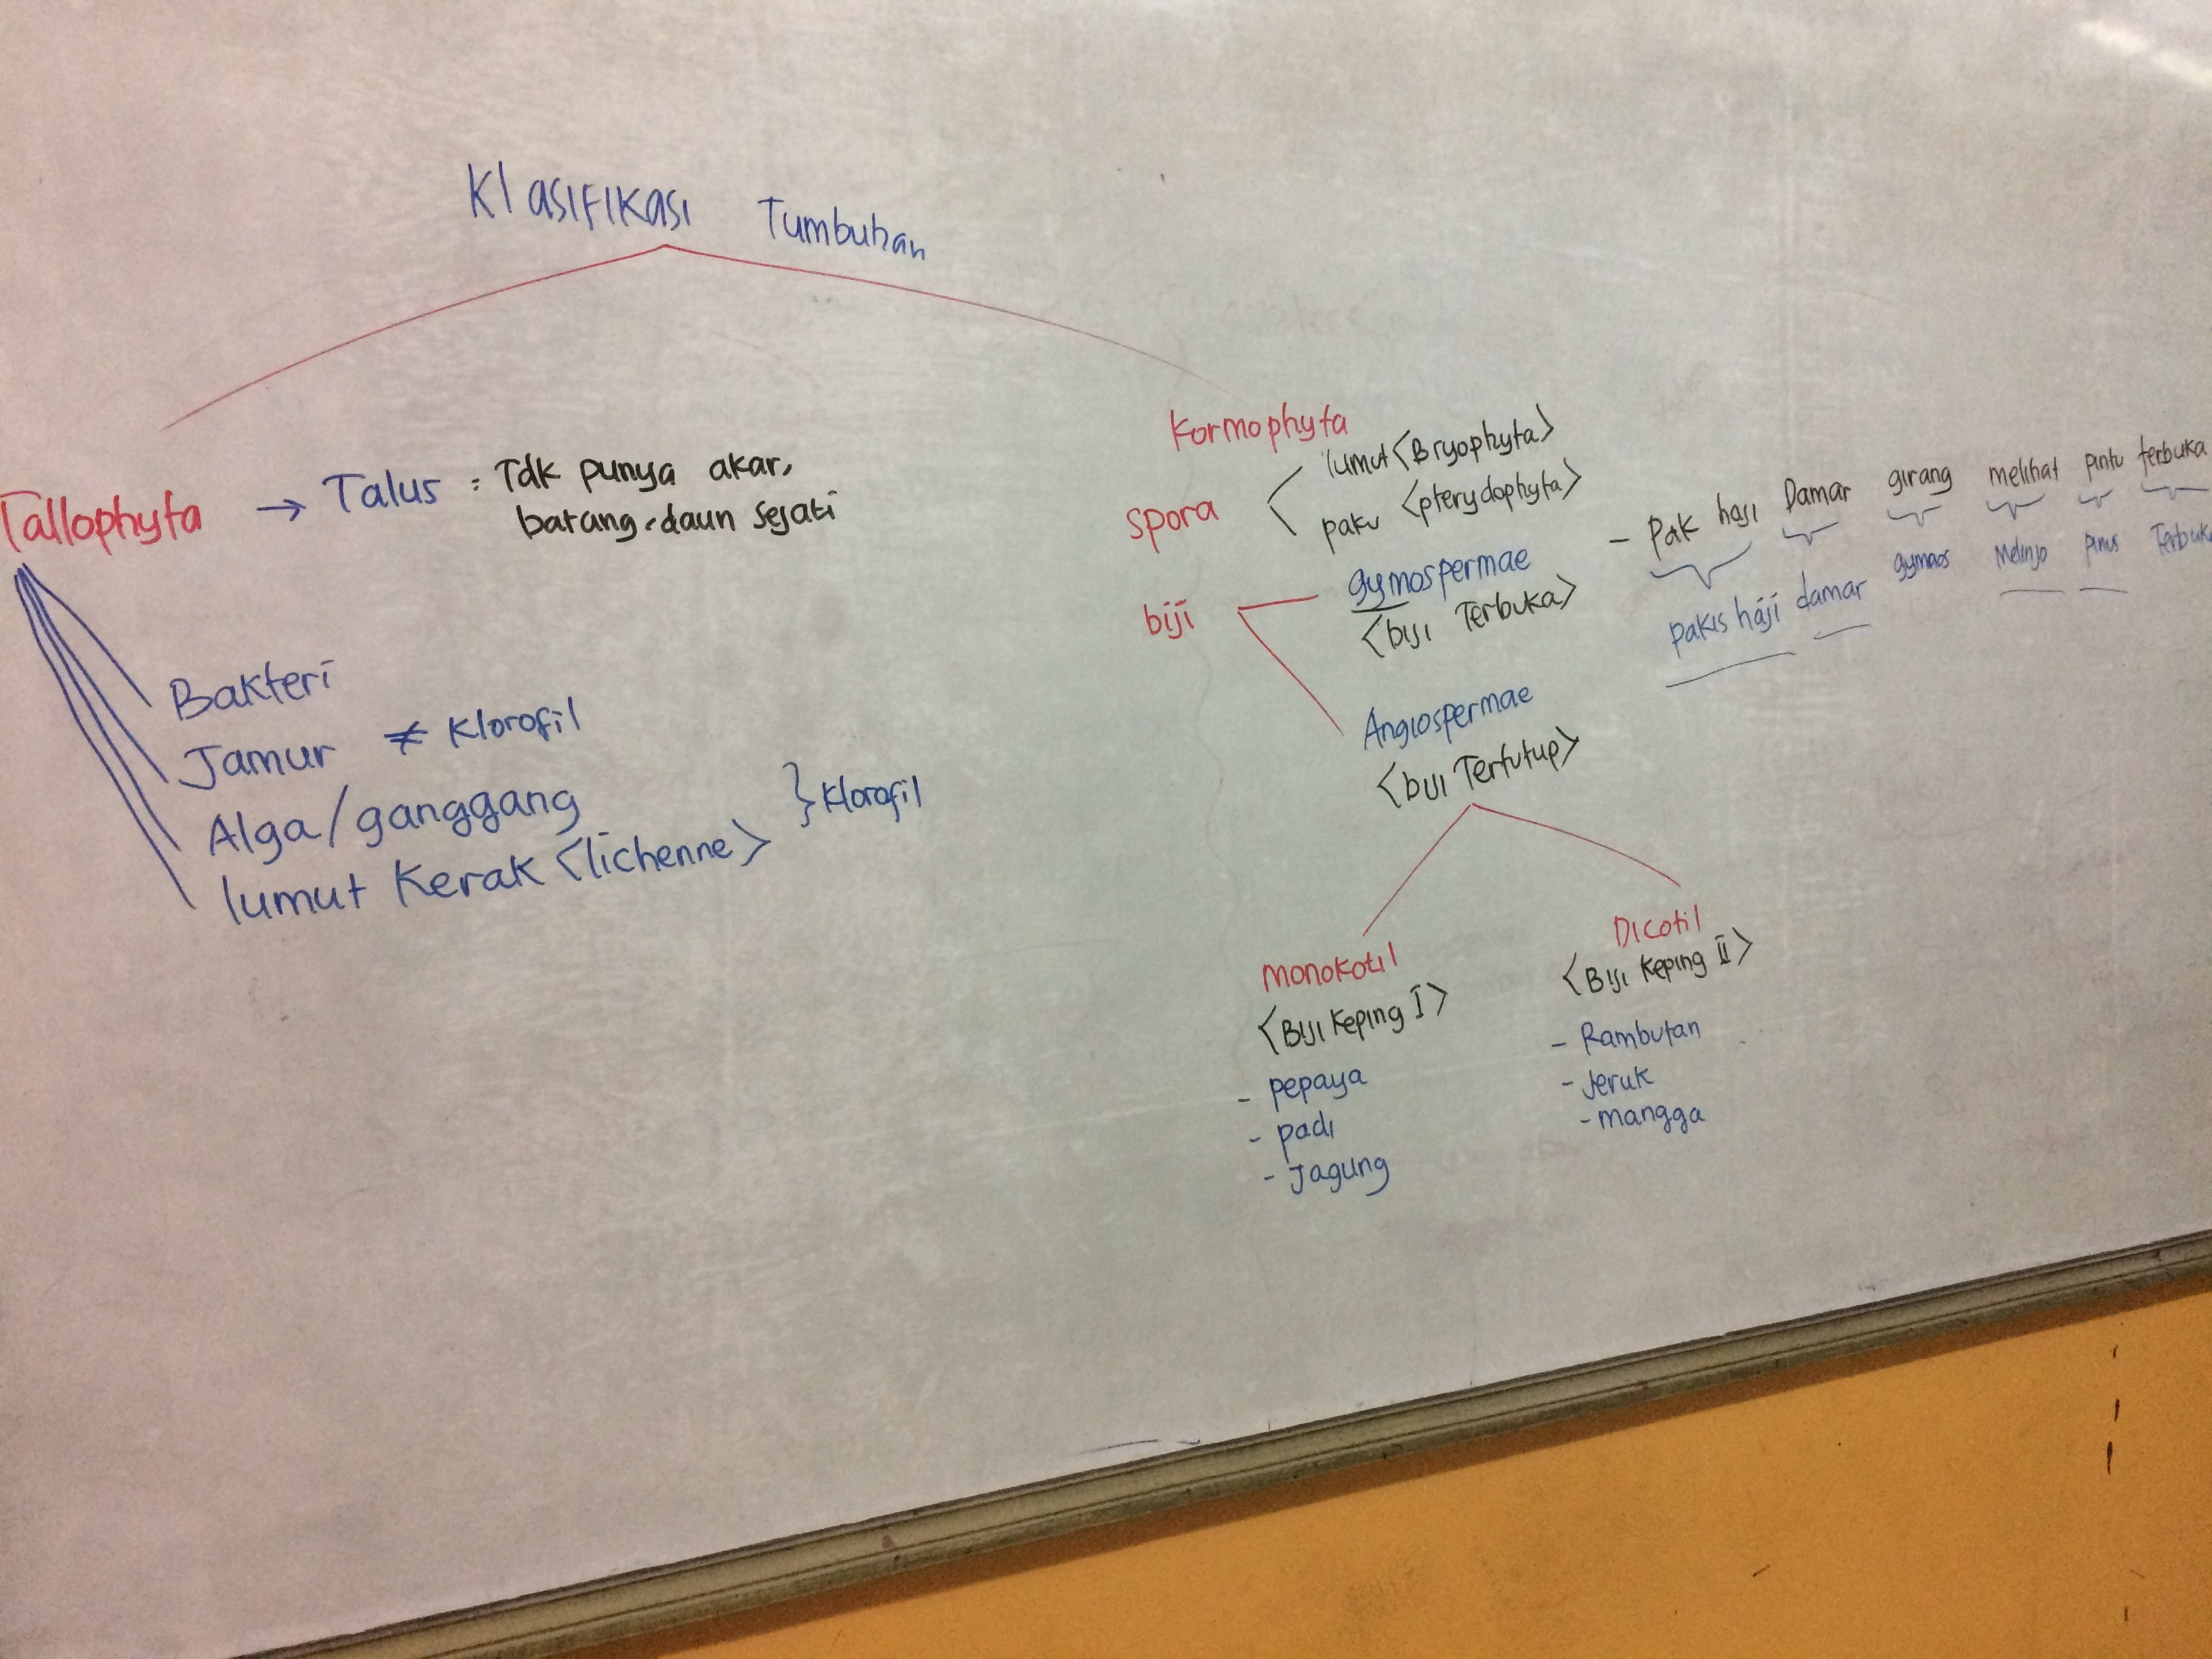 Klasifikasi Tumbuhan
Tallophyta → Talus : Tdk punya akar,
batang, daun sejati
Bakteri
Jamur ≠ Klorofil
Alga/ganggang
lumut Kerak <lichenne> } Klorofil
Kormophyta
spora
lumut <Bryophyta>
paku <pterydophyta>
biji
gymospermae
<biji Terbuka>
- Pak haji Damar girang melihat pintu terbuka
pakis haji damar gymnos Melinjo pinus Terbuka
Angiospermae
<biji Tertutup>
Monokotil
<Biji Keping I>
- pepaya
- padi
- Jagung
Dicotil
<Biji Keping II>
- Rambutan
- Jeruk
- mangga